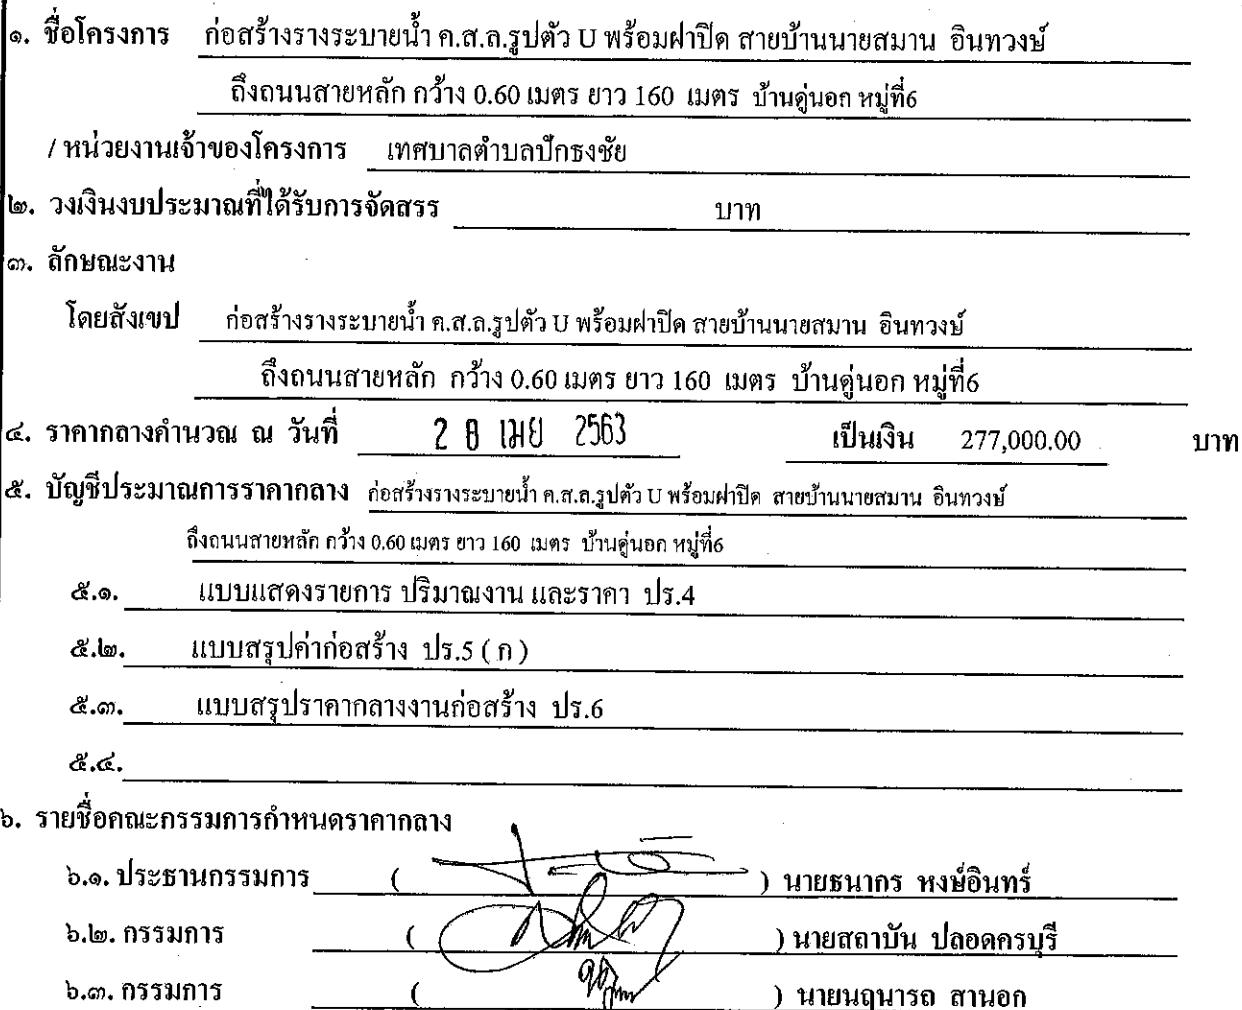 ๑. ชื่อโครงการ ก่อสร้างรางระบายน้ำ ค.ส.ล.รูปตัว U พร้อมฝาปิด สายบ้านนายสมาน อินทวงษ์
ถึงถนนสายหลัก กว้าง 0.60 เมตร ยาว 160 เมตร บ้านดู่นอก หมู่ที่6
/ หน่วยงานเจ้าของโครงการ เทศบาลตำบลปักธงชัย
๒. วงเงินงบประมาณที่ได้รับการจัดสรร บาท
๓. ลักษณะงาน
โดยสังเขป ก่อสร้างรางระบายน้ำ ค.ส.ล.รูปตัว U พร้อมฝาปิด สายบ้านนายสมาน อินทวงษ์
ถึงถนนสายหลัก กว้าง 0.60 เมตร ยาว 160 เมตร บ้านดู่นอก หมู่ที่6
๔. ราคากลางคำนวณ ณ วันที่ 2 8 เมย 2563 เป็นเงิน 277,000.00 บาท
๕. บัญชีประมาณการราคากลาง ก่อสร้างรางระบายน้ำ ค.ส.ล.รูปตัว U พร้อมฝาปิด สายบ้านนายสมาน อินทวงษ์
ถึงถนนสายหลัก กว้าง 0.60 เมตร ยาว 160 เมตร บ้านดู่นอก หมู่ที่6
๕.๑. แบบแสดงรายการ ปริมาณงาน และราคา ปร.4
๕.๒. แบบสรุปค่าก่อสร้าง ปร.5 ( ก )
๕.๓. แบบสรุปราคากลางงานก่อสร้าง ปร.6
๕.๔.
๖. รายชื่อคณะกรรมการกำหนดราคากลาง
๖.๑. ประธานกรรมการ ( ) นายธนากร หงษ์อินทร์
๖.๒. กรรมการ ( ) นายสถาบัน ปลอดครบุรี
๖.๓. กรรมการ ( ) นายนฤนารถ สานอก